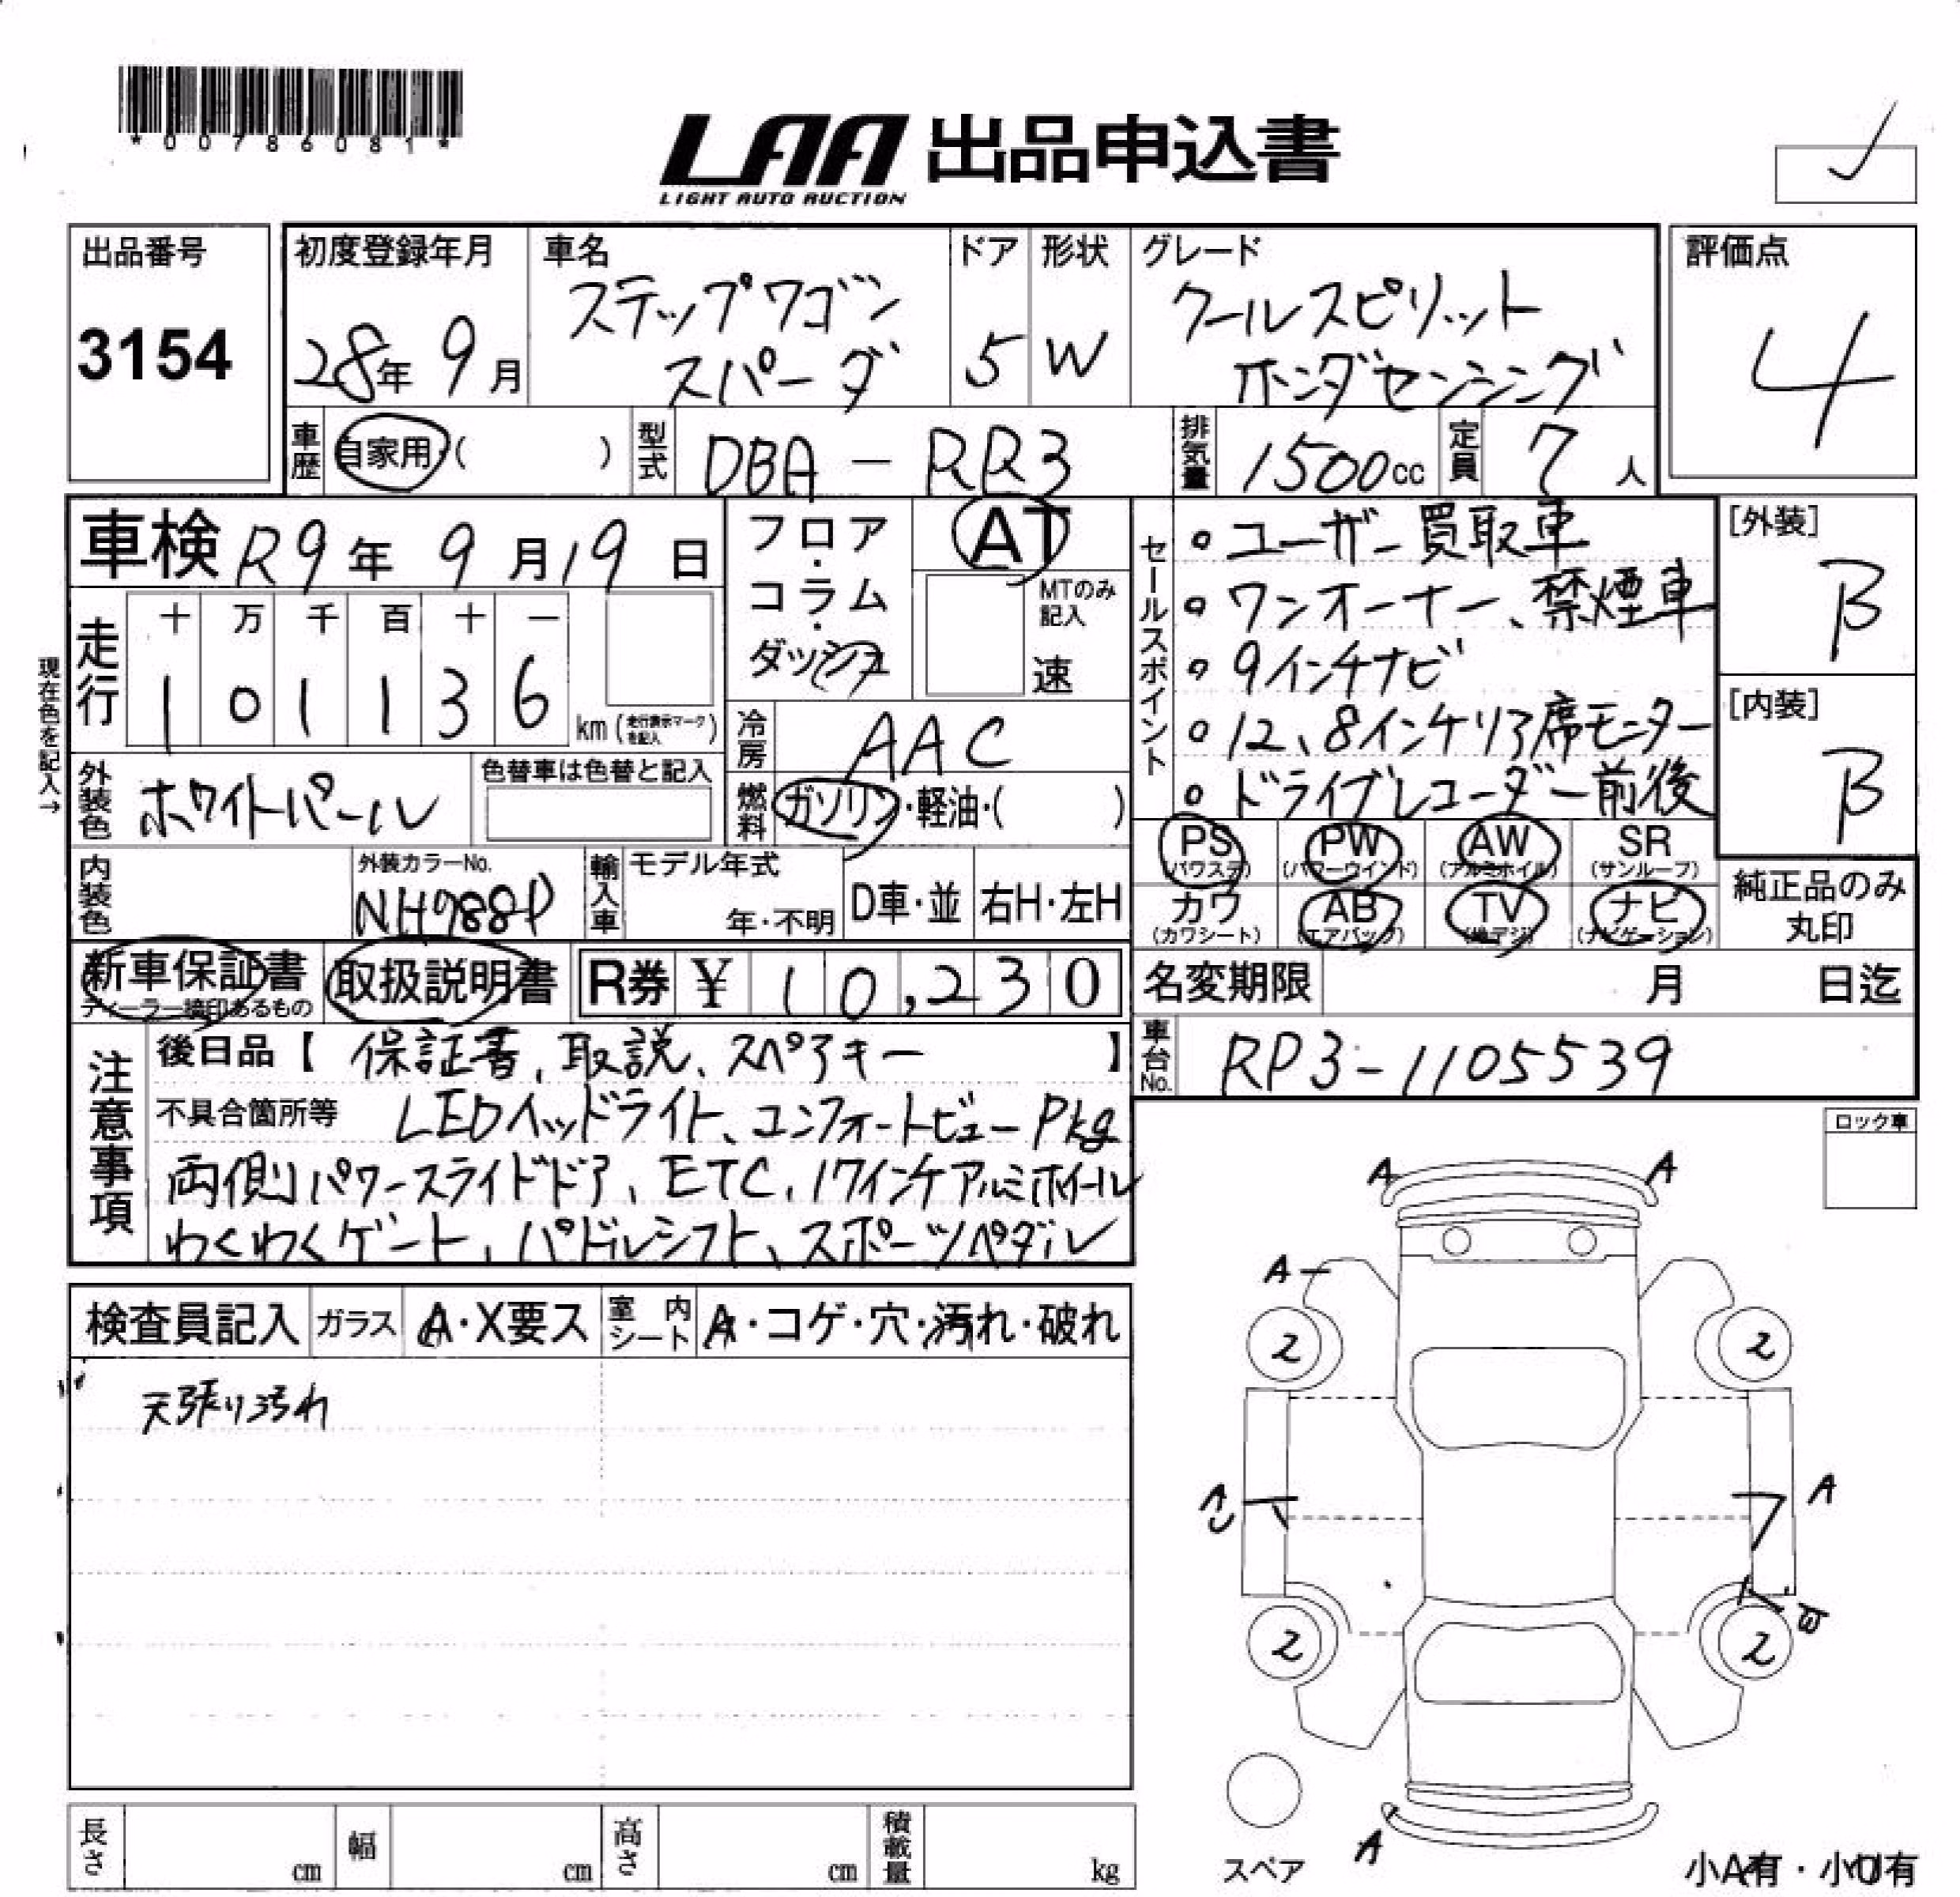 *00786081*
LAA 出品申込書
LIGHT AUTO AUCTION
出品番号
3154
初度登録年月
28年 9月
車名
ステップワゴン
スパーダ
ドア
5
形状
W
グレード
クールスピリット
ホンダセンシング
評価点
4
車歴 自家用・( )
型式 DBA-RR3
排気量 1500cc
定員 7人
車検 R9年 9月19日
走行
十 万 千 百 十 一
1 0 1 1 3 6 km(走行表示マークを記入)
現在色を記入→
フロア・コラム・ダッシュ
AT
MTのみ記入
速
冷房 AAC
燃料 ガソリン・軽油・( )
外装色 ホワイトパール
色替車は色替と記入
内装色
外装カラーNo.
NH988P
輸入車
モデル年式
年・不明
D車・並
右H・左H
セールスポイント
・ユーザー買取車
・ワンオーナー、禁煙車
・9インチナビ
・12、8インチリア席モニター
・ドライブレコーダー前後
[外装]
B
[内装]
B
PS (パワステ)
PW (パワーウインド)
AW (アルミホイル)
SR (サンルーフ)
カワ (カワシート)
AB (エアバック)
TV (地デジ)
ナビ (ナビゲーション)
純正品のみ丸印
新車保証書
ディーラー捺印あるもの
取扱説明書
R券 ¥ 10,230
名変期限 月 日迄
車台No. RP3-1105539
注意事項
後日品【 保証書、取説、スペアキー 】
不具合箇所等 LEDヘッドライト、コンフォートビューPkg
両側パワースライドドア、ETC、17インチアルミホイール
わくわくゲート、パドルシフト、スポーツペダル
ロック車
検査員記入
ガラス A・X要ス
室内シート A・コゲ・穴・汚れ・破れ
天張り汚れ
A A
A
2 2
A
2 2
A
スペア
小A有・小U有
長さ cm
幅 cm
高さ cm
積載量 kg